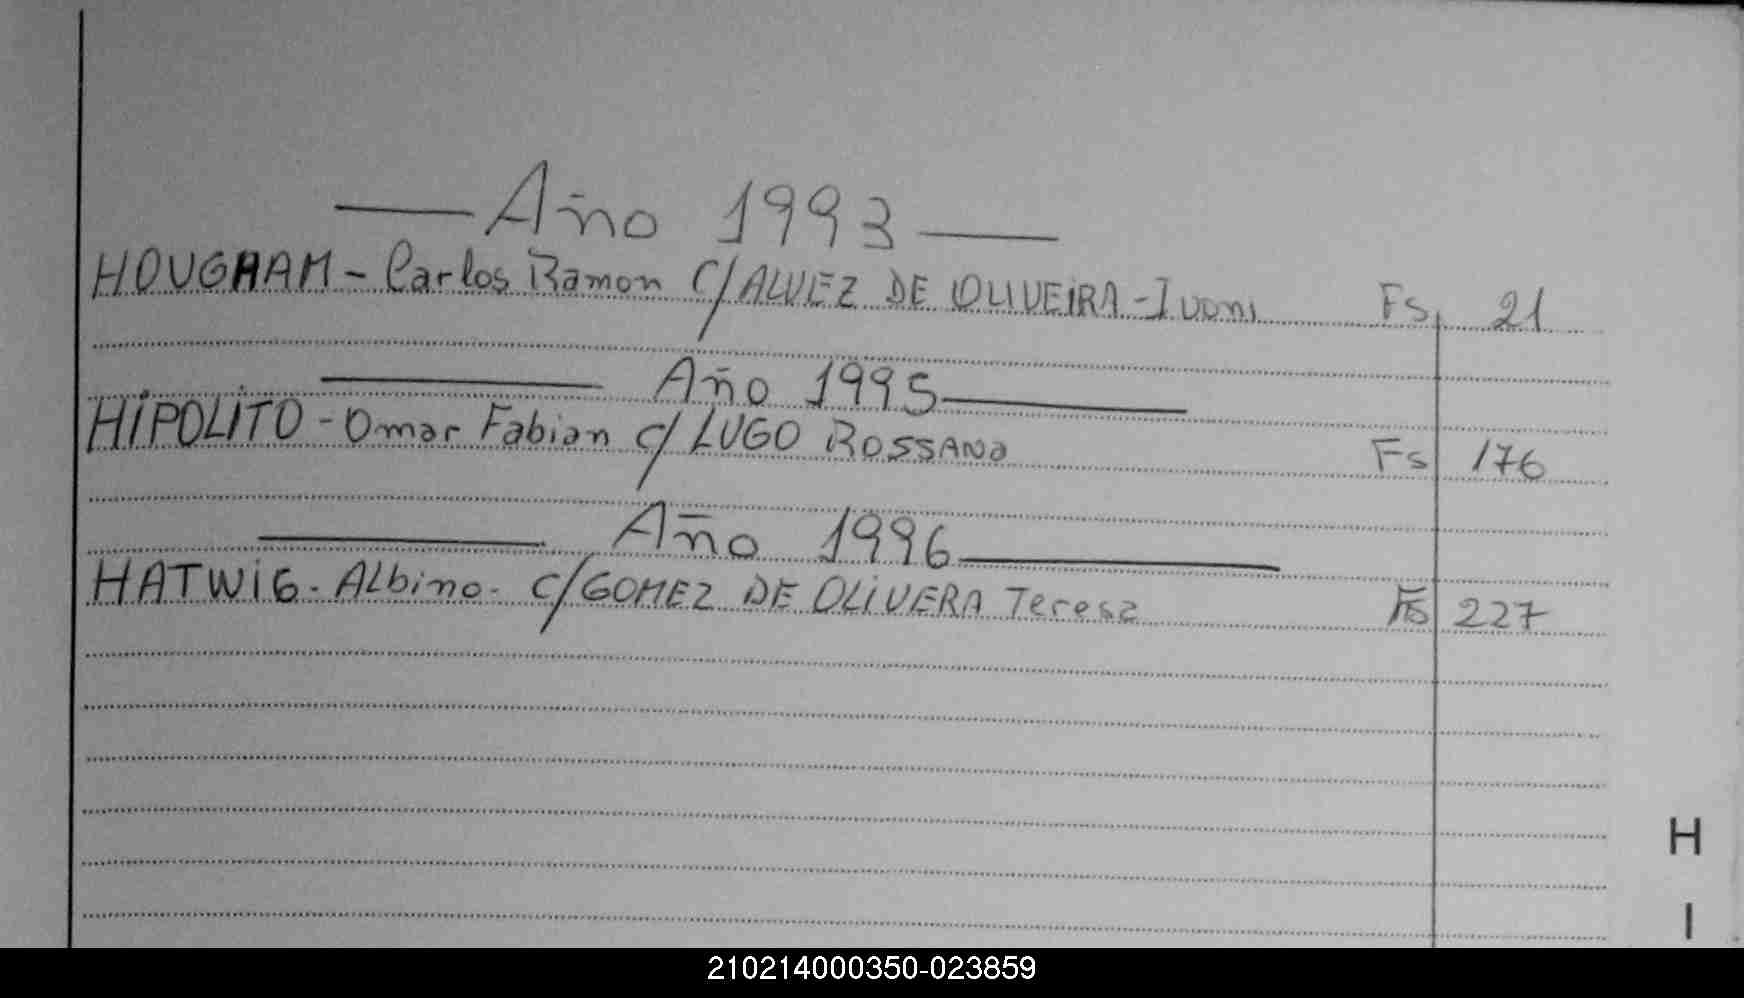 Año 1993
HOUGHAM - Carlos Ramon C/ ALVEZ DE OLIVEIRA - Ivoni Fs 21
Año 1995
HIPOLITO - Omar Fabian c/ LUGO ROSSANA Fs 176
Año 1996
HATWIG. Albino. c/ GOMEZ DE OLIVERA Teresa Fs 227
H
I
210214000350-023859